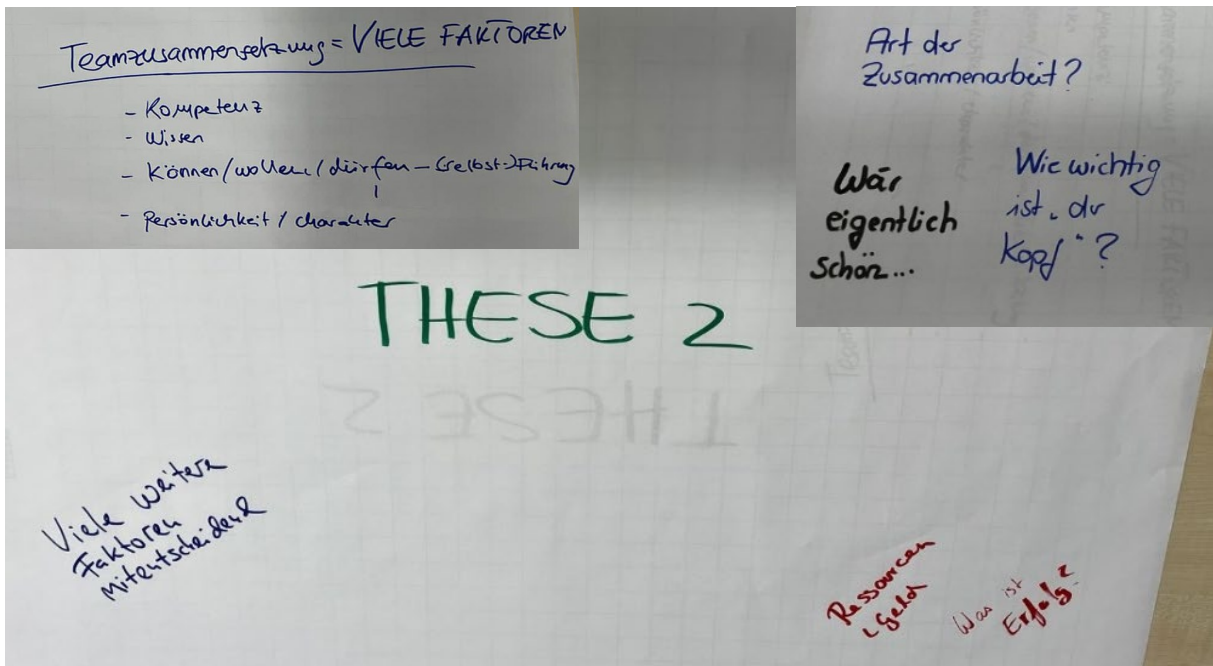 Teamzusammensetzung = VIELE FAKTOREN
- Kompetenz
- Wissen
- Können/wollen/dürfen – (selbst-)Führung
- Persönlichkeit / Charakter
Art der
Zusammenarbeit?
Wär
eigentlich
schön...
Wie wichtig
ist „der
Kopf“?
THESE 2
Viele weitere
Faktoren
mitentscheidend
Ressourcen
Geld
Was ist
Erfolg?